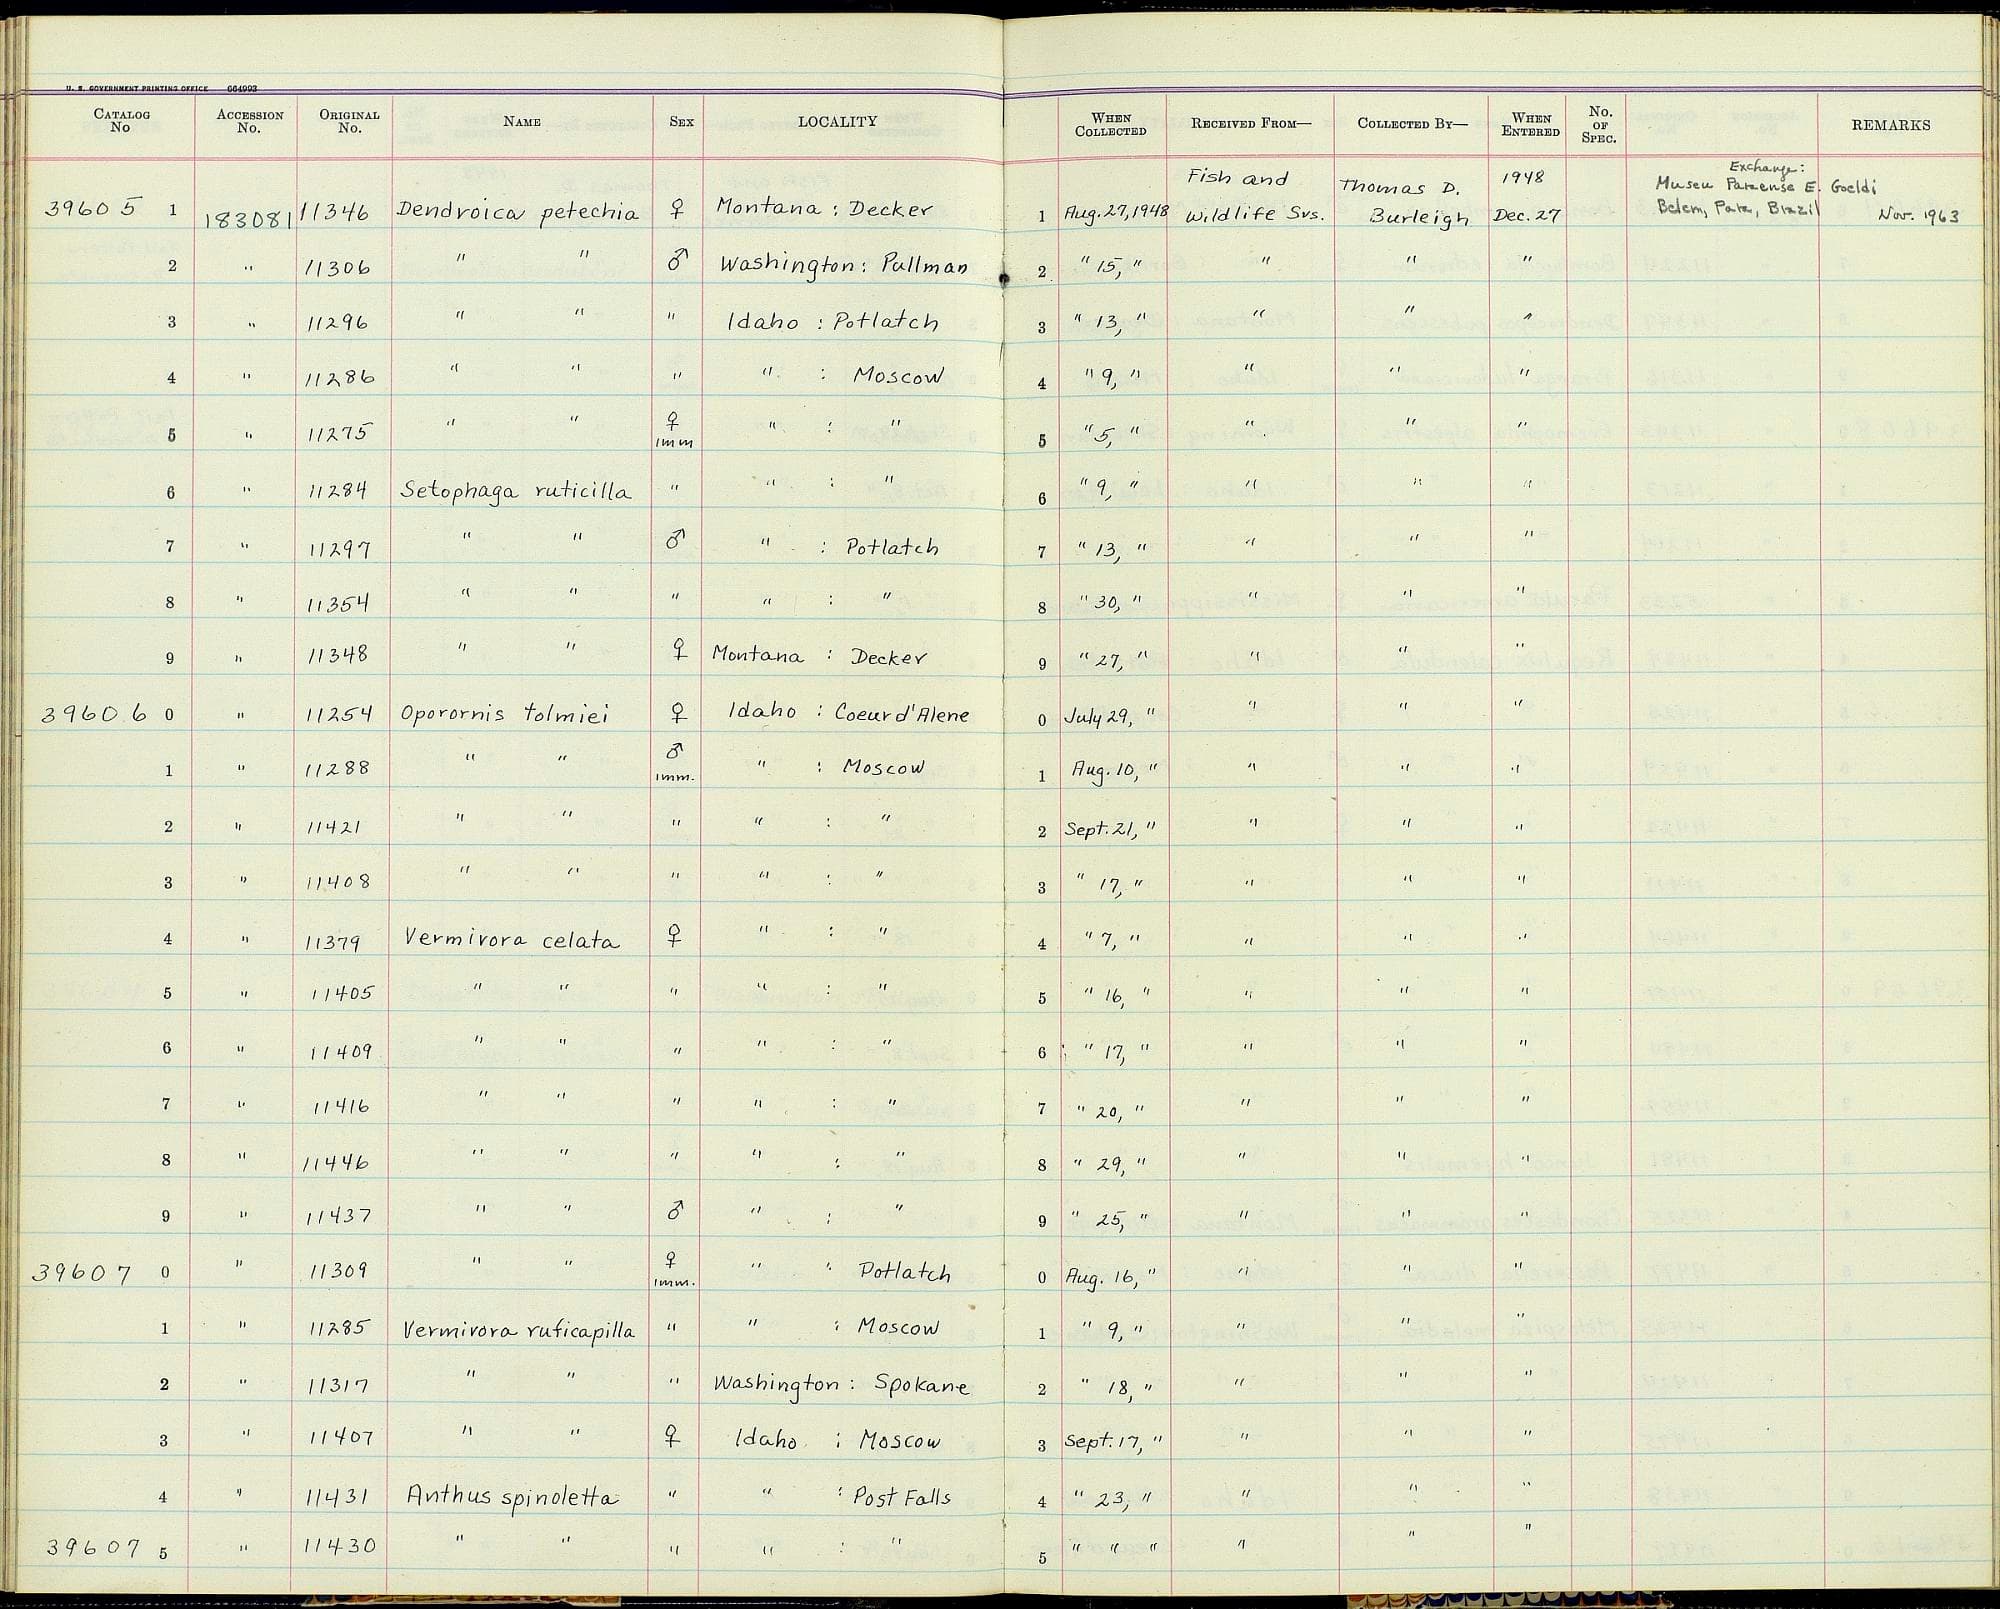 U. S. GOVERNMENT PRINTING OFFICE 664993
CATALOG No ACCESSION No. ORIGINAL No. NAME SEX LOCALITY WHEN COLLECTED RECEIVED FROM— COLLECTED BY— WHEN ENTERED No. OF SPEC. REMARKS
39605 1 183081 11346 Dendroica petechia ♀ Montana : Decker 1 Aug. 27, 1948 Fish and Wildlife Svs. Thomas D. Burleigh 1948 Dec. 27 Exchange: Museu Paraense E. Goeldi Belem, Para, Brazil Nov. 1963
2 " 11306 " " ♂ Washington : Pullman 2 " 15, " " " "
3 " 11296 " " " Idaho : Potlatch 3 " 13, " " " "
4 " 11286 " " " " : Moscow 4 " 9, " " " "
5 " 11275 " " ♀ imm " : " 5 " 5, " " " "
6 " 11284 Setophaga ruticilla " " : " 6 " 9, " " " "
7 " 11297 " " ♂ " : Potlatch 7 " 13, " " " "
8 " 11354 " " " " : " 8 " 30, " " " "
9 " 11348 " " ♀ Montana : Decker 9 " 27, " " " "
39606 0 " 11254 Oporornis tolmiei ♀ Idaho : Coeur d'Alene 0 July 29, " " " "
1 " 11288 " " ♂ imm. " : Moscow 1 Aug. 10, " " " "
2 " 11421 " " " " : " 2 Sept. 21, " " " "
3 " 11408 " " " " : " 3 " 17, " " " "
4 " 11379 Vermivora celata ♀ " : " 4 " 7, " " " "
5 " 11405 " " " " : " 5 " 16, " " " "
6 " 11409 " " " " : " 6 " 17, " " " "
7 " 11416 " " " " : " 7 " 20, " " " "
8 " 11446 " " " " : " 8 " 29, " " " "
9 " 11437 " " ♂ " : " 9 " 25, " " " "
39607 0 " 11309 " " ♀ imm. " : Potlatch 0 Aug. 16, " " " "
1 " 11285 Vermivora ruficapilla " " : Moscow 1 " 9, " " " "
2 " 11317 " " " Washington : Spokane 2 " 18, " " " "
3 " 11407 " " ♀ Idaho : Moscow 3 Sept. 17, " " " "
4 " 11431 Anthus spinoletta " " : Post Falls 4 " 23, " " " "
39607 5 " 11430 " " " " : " 5 " " " " " "